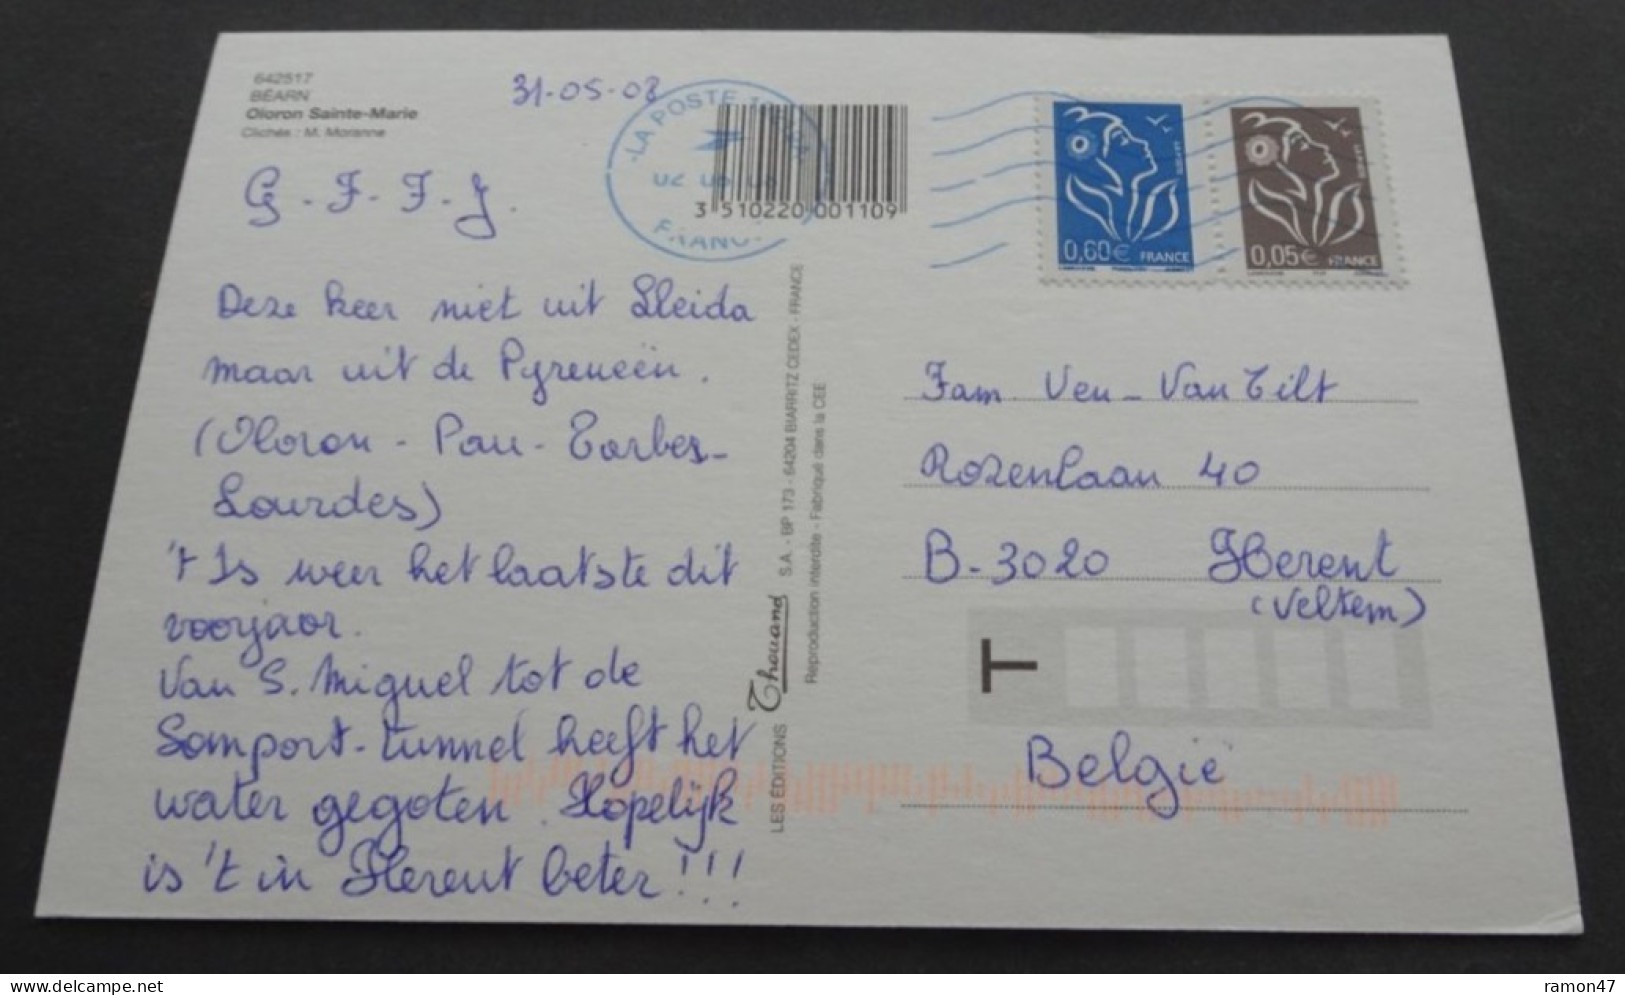 642517
BÉARN
Oloron Sainte-Marie
Clichés : M. Moranne
31-05-08
G - F - F - J.
Deze keer niet uit Lleida
maar uit de Pyreneeën.
(Oloron - Pau - Tarbes -
Lourdes)
't Is weer het laatste dit
voorjaar.
Van S. Miguel tot de
Somport-tunnel heeft het
water gegoten. Hopelijk
is 't in Herent beter!!!
LA POSTE
FRANCE
3 510220 001109
LES ÉDITIONS Thouand S.A. - BP 173 - 64204 BIARRITZ CEDEX - FRANCE
Reproduction interdite - Fabriqué dans la CEE
0,60€ FRANCE
0,05€ FRANCE
Fam. Ven - Van Tilt
Rozenlaan 40
B-3020 Herent
(Veltem)
T
België
delcampe.net
ramon47